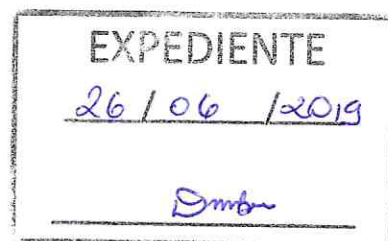 EXPEDIENTE
26 / 06 / 2019